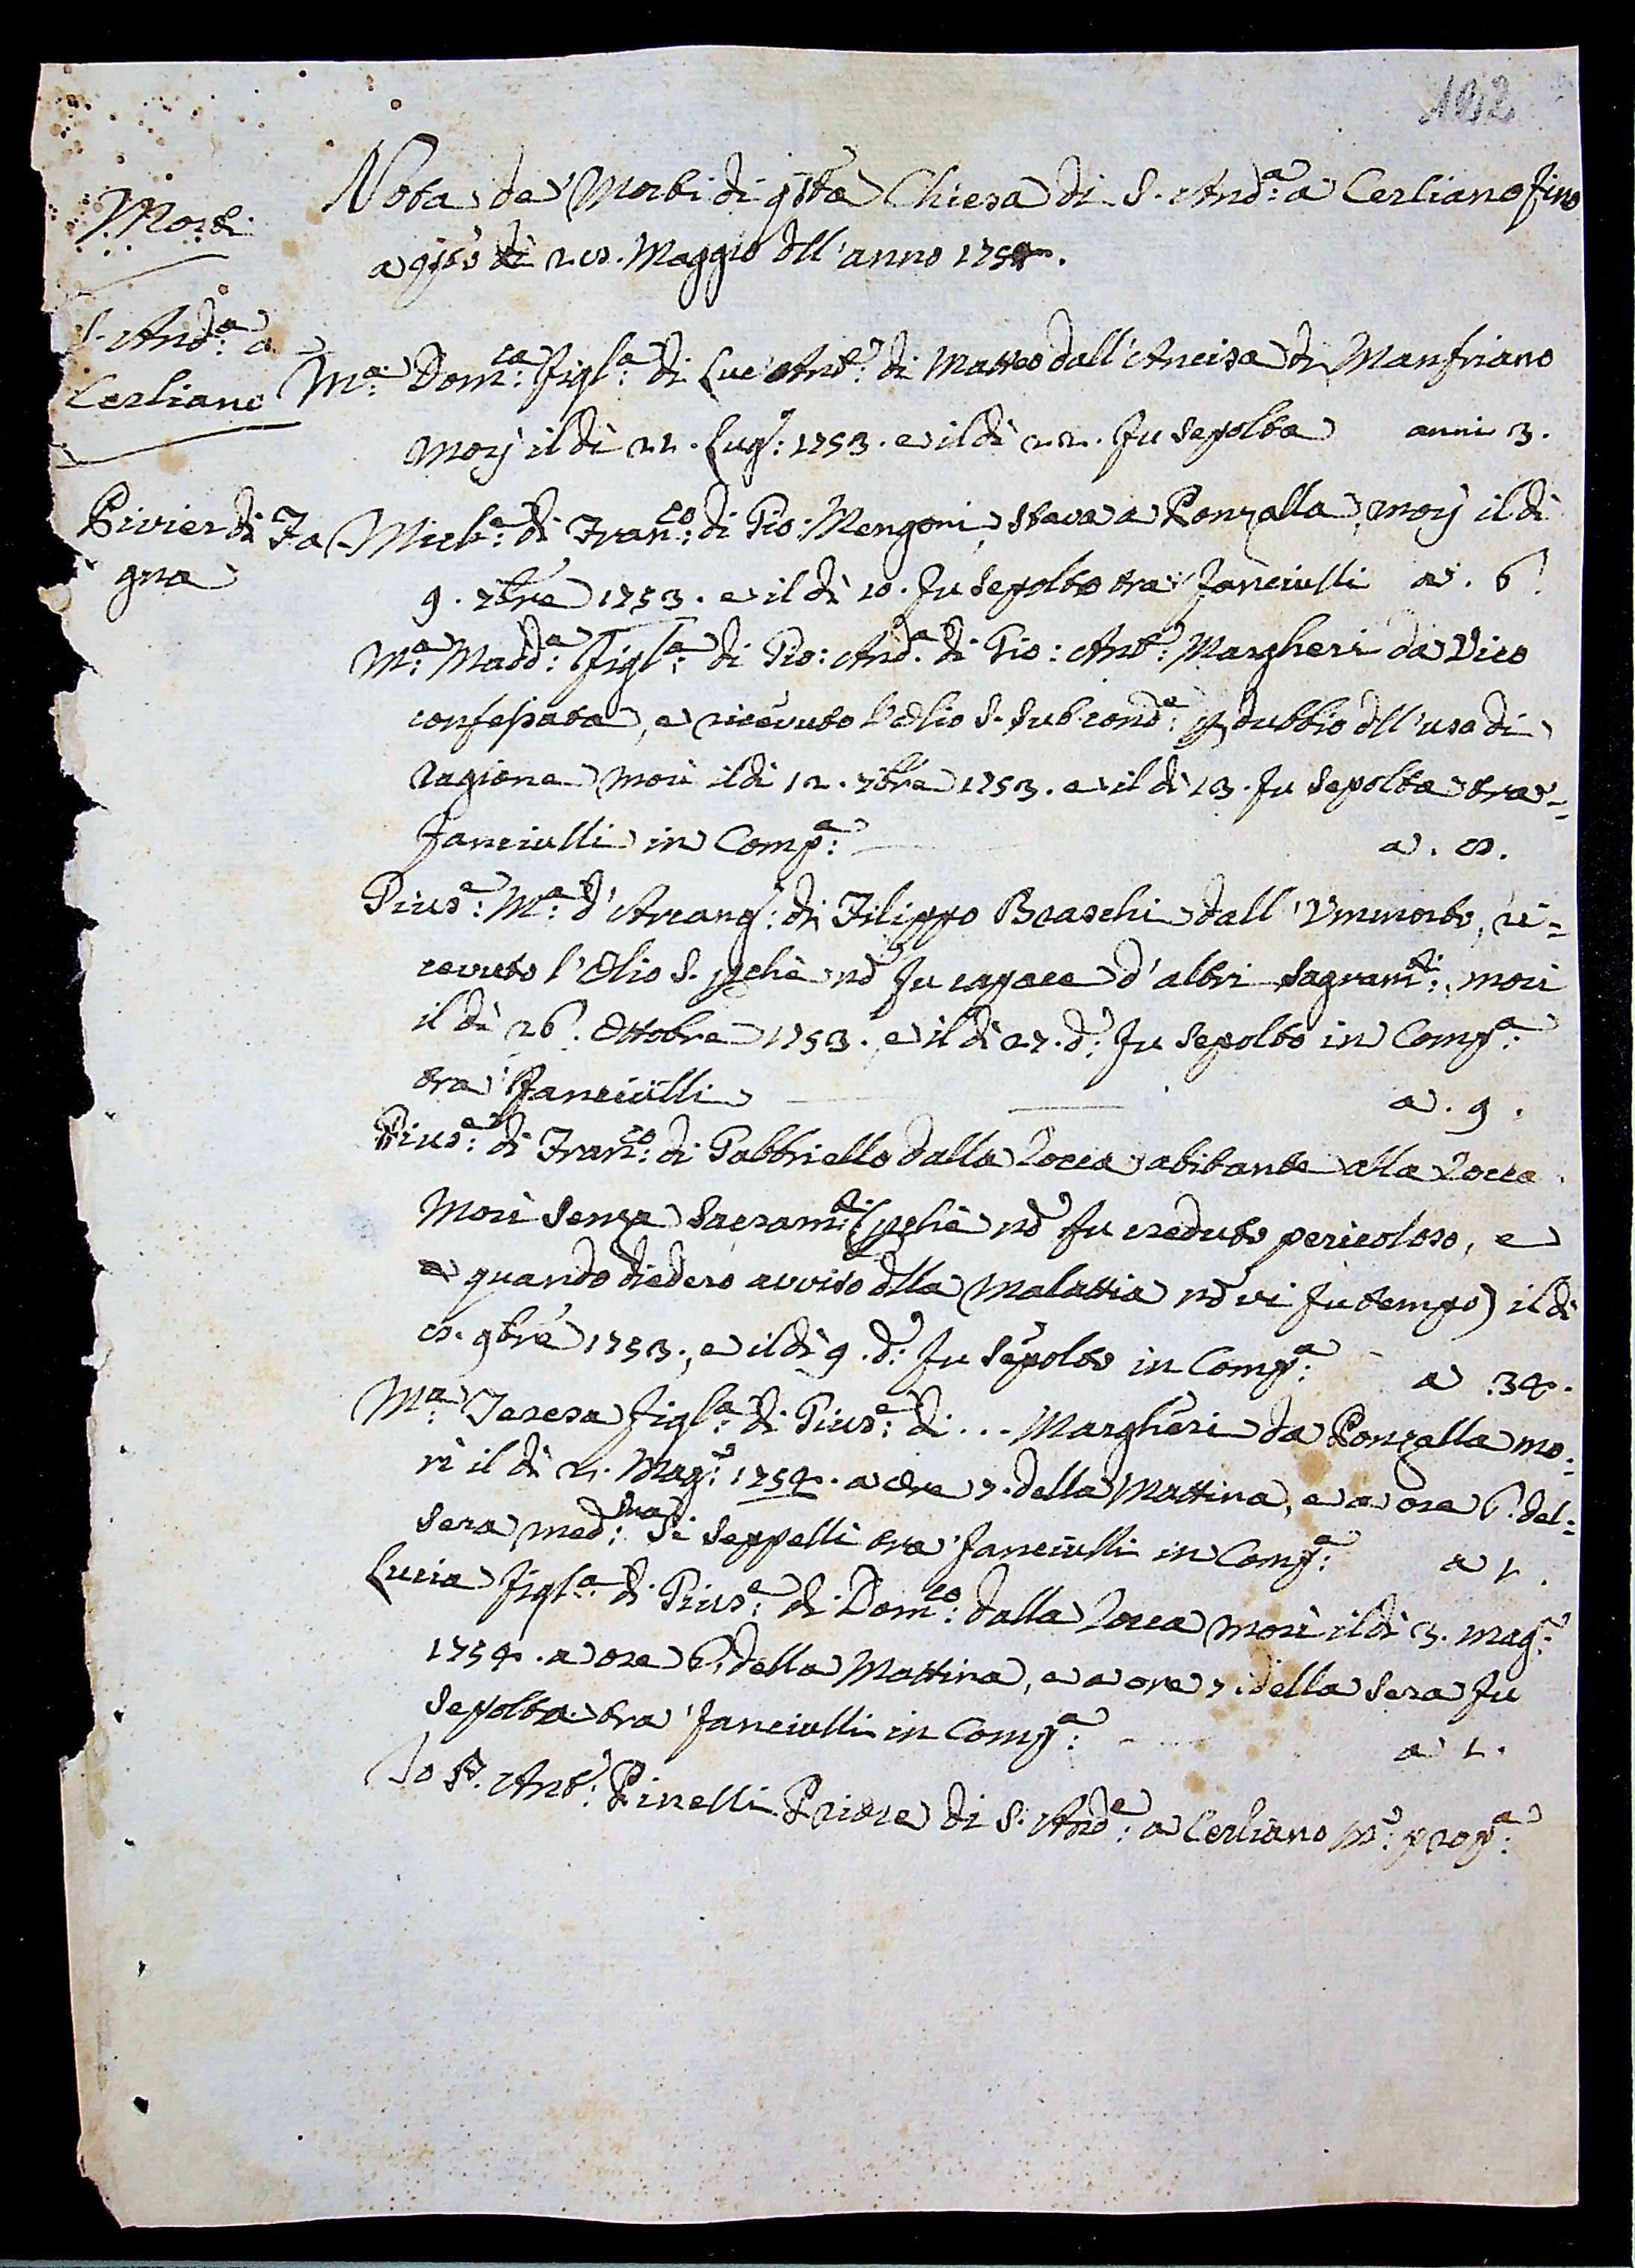 Morti
S. And.ª a
Cerliano
Pivier di Fa
gna
Nota de' Morti di qsta Chiesa di S. And:ª a Cerliano fino
a qsto dì 28. Maggio dll'anno 1754.
M:ª Dom:ca figl:ª di Luc'Ant:º di Matteo dall'Ancisa di Manfriano
morì il dì 21. Lug:º 1753. e il dì 22. fu sepolta anni 3.
Mich:e di Fran:co di Gio: Mengoni, stava a Ronzalla, morì il dì
9. 7bre 1753. e il dì 10. fu sepolto tra' fanciulli a. 6.
M:ª Madd:ª figl:ª di Gio: And.ª di Gio: Ant:º Margheri da Vico
confessata, e ricevuto l'Olio S. sub cond:e p dubbio dll'uso di
ragione morì il dì 12. 7bre 1753. e il dì 13. fu sepolta tra'=
fanciulli in Comp:ª a. 8.
Gius:e M:ª d'Arcang:º di Filippo Braschi dall'Ummorto, ri=
cevuto l'Olio S. pchè nõ fu capace d'altri sagram:ti morì
il dì 26. Ottobre 1753. e il dì 27. d:º fu sepolto in Comp:ª
tra' fanciulli a. 9.
Gius:e di Fran:co di Gabbriello dalla Rocca abitante alla Rocca
morì senza sacram:ti (pchè nõ fu creduto pericoloso, e
quando diedero avviso dlla malattia nõ vi fu tempo) il dì
8. 9bre 1753., e il dì 9. d:º fu sepolto in Comp:ª a 34.
M:ª Teresa figl:ª di Gius:e di ... Margheri da Ronzalla mo=
rì il dì 2. Mag:º 1754. a ore 7. della Mattina, e a ore 6. del=
sera med:ma si seppellì tra' fanciulli in Comp:ª a 1.
Lucia figl:ª di Gius:e di Dom:co dalla Rocca morì il dì 3. Mag:º
1754. a ore 6. della Mattina, e a ore 7. della sera fu
sepolta tra' fanciulli in Comp:ª a 1.
Io P. Ant:º Pinelli Priore di S. And:ª a Cerliano m:º prop:ª